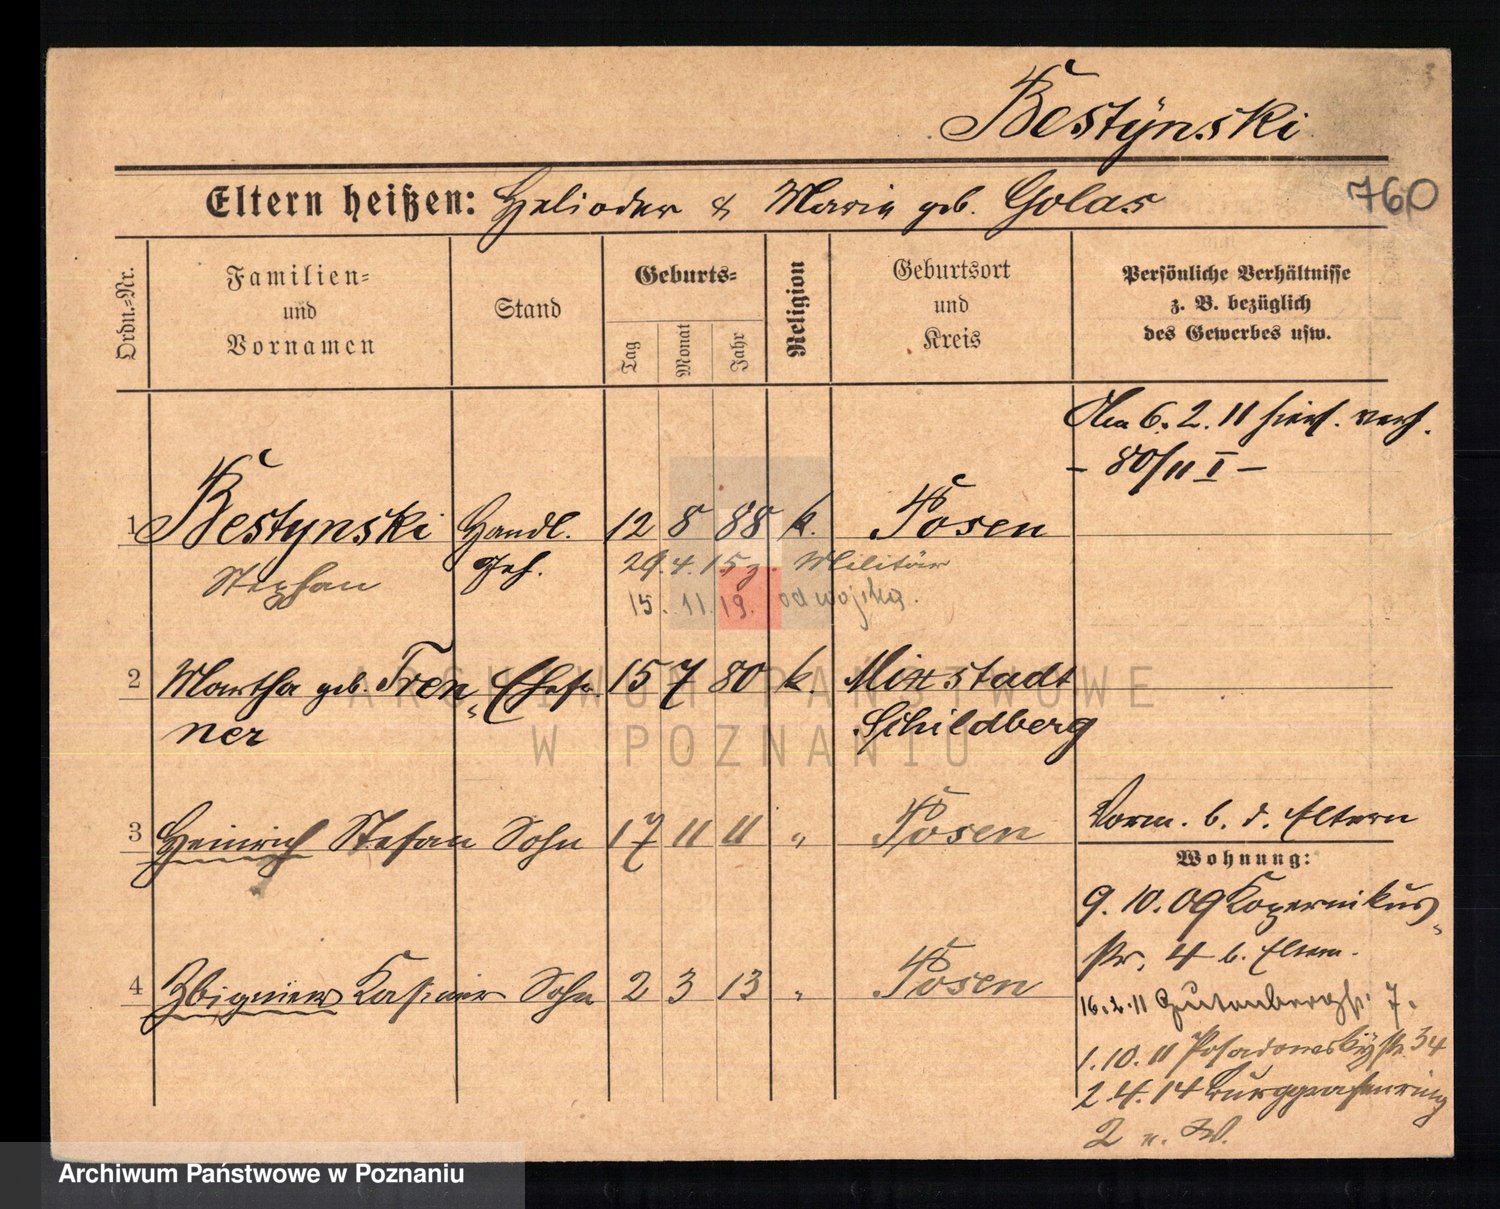 Bestynski
Eltern heißen: Heliodor & Maria geb. Golas
760
Ordn.-Nr.
Familien-
und
Vornamen
Stand
Geburts-
Tag
Monat
Jahr
Religion
Geburtsort
und
Kreis
Persönliche Verhältnisse
z. B. bezüglich
des Gewerbes usw.
Am 6. 2. 11 hier verh.
- 80/11 I -
1 Bestynski Handl. 12 8 88 k. Posen
Stephan Geh. 29. 4. 15 z. Militär
15. 11. 19. od wojska.
2 Martha geb. Fren- Ehefr. 15 7 80 k. Mixstadt
ner Schildberg
3 Heinrich Stefan Sohn 17 11 11 " Posen
Vorm. b. d. Eltern
Wohnung:
9. 10. 09 Kopernikus-
str. 4 b. Eltern.
4 Zbigniew Kasimir Sohn 2 3 13 " Posen
16. 2. 11 Gutenbergstr. 7.
1. 10. 11 Posadowskystr. 34
2. 4. 14 Burggrafenring
2
ARCHIWUM PAŃSTWOWE
W POZNANIU
Archiwum Państwowe w Poznaniu